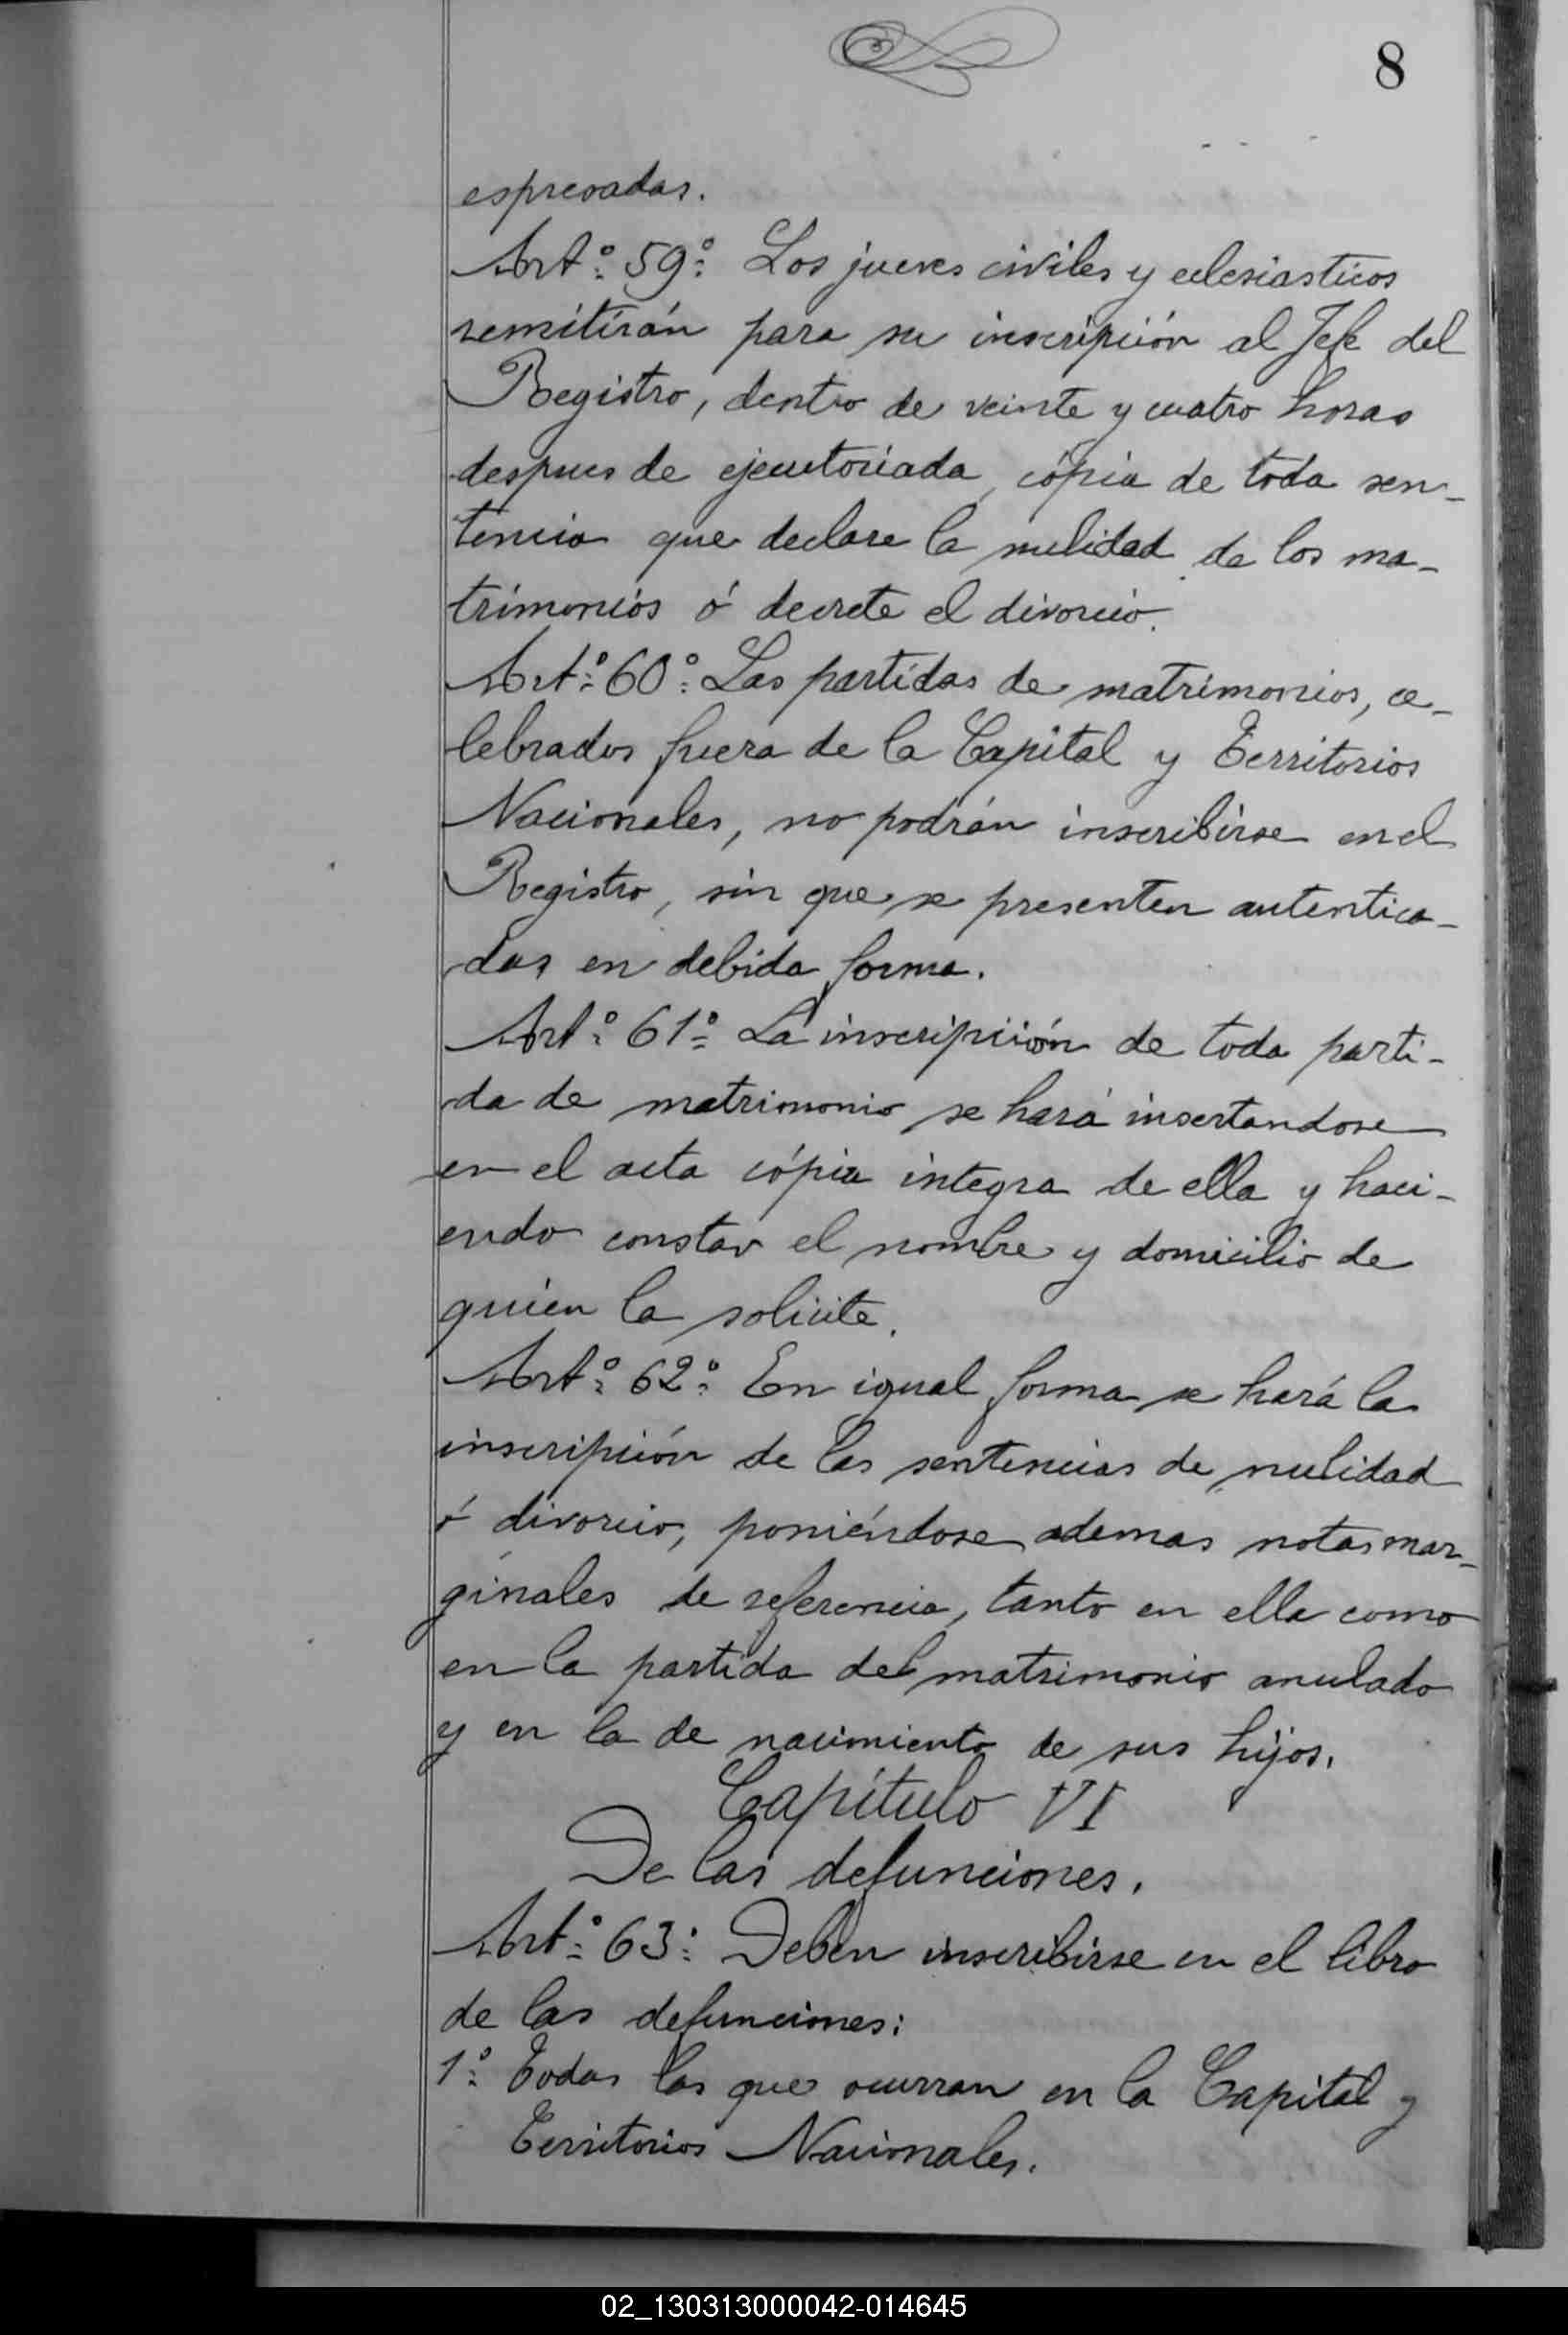 8
espresadas.
Artº 59º Los jueces civiles y eclesiasticos
remitirán para su inscripción al Jefe del
Registro, dentro de veinte y cuatro horas
despues de ejecutoriada, cópia de toda sen-
tencia que declare la nulidad de los ma-
trimonios ó decrete el divorcio.
Artº 60º Las partidas de matrimonios, ce-
lebrados fuera de la Capital y Territorios
Nacionales, no podrán inscribirse en el
Registro, sin que se presenten autentica-
das en debida forma.
Artº 61º La inscripción de toda parti-
da de matrimonio se hará insertandose
en el acta cópia integra de ella y haci-
endo constar el nombre y domicilio de
quien la solicite.
Artº 62º En igual forma se hará la
inscripción de las sentencias de nulidad
ó divorcio, poniéndose ademas notas mar-
ginales de referencia, tanto en ella como
en la partida del matrimonio anulado
y en la de nacimiento de sus hijos.
Capítulo VI
De las defunciones.
Artº 63º Deben inscribirse en el libro
de las defunciones:
1º Todas las que ocurran en la Capital y
Territorios Nacionales.
02_130313000042-014645